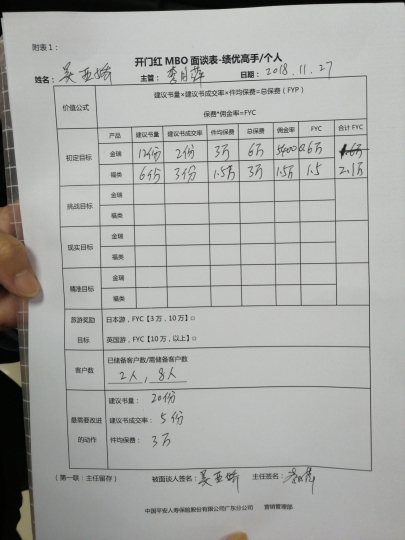 附表1：
开门红 MBO 面谈表-绩优高手/个人
姓名：吴亚娇 主管： 日期：2018.11.27
价值公式 建议书量×建议书成交率×件均保费=总保费（FYP）
保费*佣金率=FYC
产品 建议书量 建议书成交率 件均保费 总保费 佣金率 FYC 合计 FYC
初定目标 金瑞 12份 2份 3万 6万 0.6万
福类 6份 3份 1.5万 3万 1.5万 1.5 2.1万
挑战目标 金瑞
福类
现实目标 金瑞
福类
精准目标 金瑞
福类
旅游奖励 日本游，FYC【3万，10万】□
目标 英国游，FYC【10万，以上】□
客户数 已储备客户数/需储备客户数
2人，8人
最需要改进的动作 建议书量：20份
建议书成交率：5份
件均保费：3万
（第一联：主任留存） 被面谈人签名：吴亚娇 主任签名：
中国平安人寿保险股份有限公司广东分公司 营销管理部